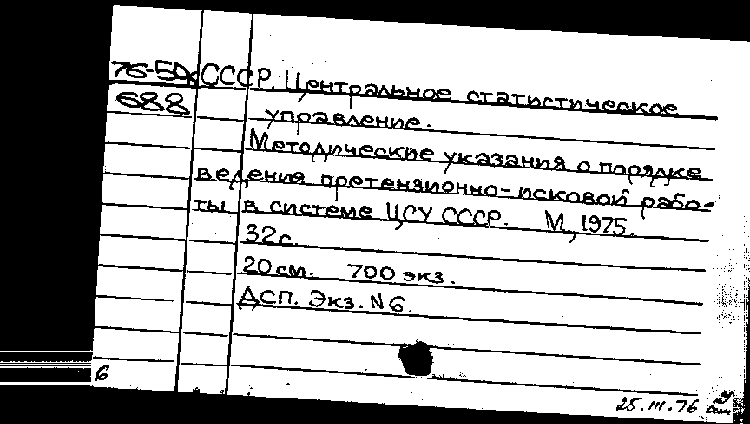 76-59к СССР. Центральное статистическое
688 управление.
Методические указания о порядке
ведения претензионно-исковой рабо-
ты в системе ЦСУ СССР. М., 1975.
32с.
20см. 700 экз.
ДСП. Экз. N6.
6
25.III.76